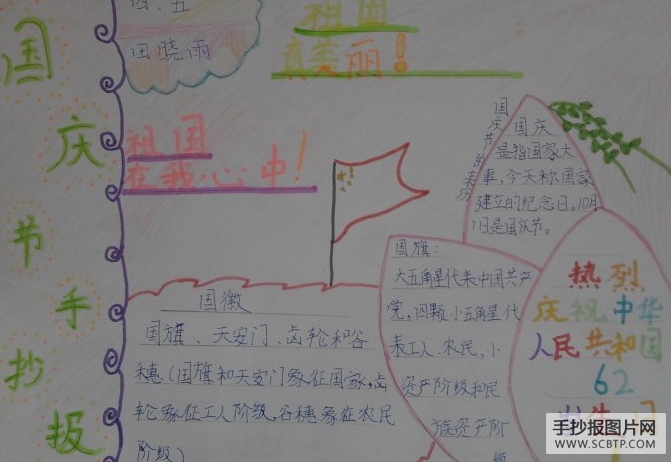 国
庆
节
手
抄
报
四.五
田晓雨
祖国
真美丽！
祖国
在我心中！
国庆节的来历
国庆
是指国家大
事,今天称国家
建立的纪念日。10月
1日是国庆节。
国徽
国旗、天安门、齿轮和谷
穗.(国旗和天安门象征国家,齿
轮象征工人阶级,谷穗象征农民
阶级)
国旗:
大五角星代表中国共产
党,四颗小五角星代
表工人、农民、小
资产阶级和民
族资产阶
级
热烈
庆祝中华
人民共和国
62
手抄报图片网
WWW.SCBTP.COM